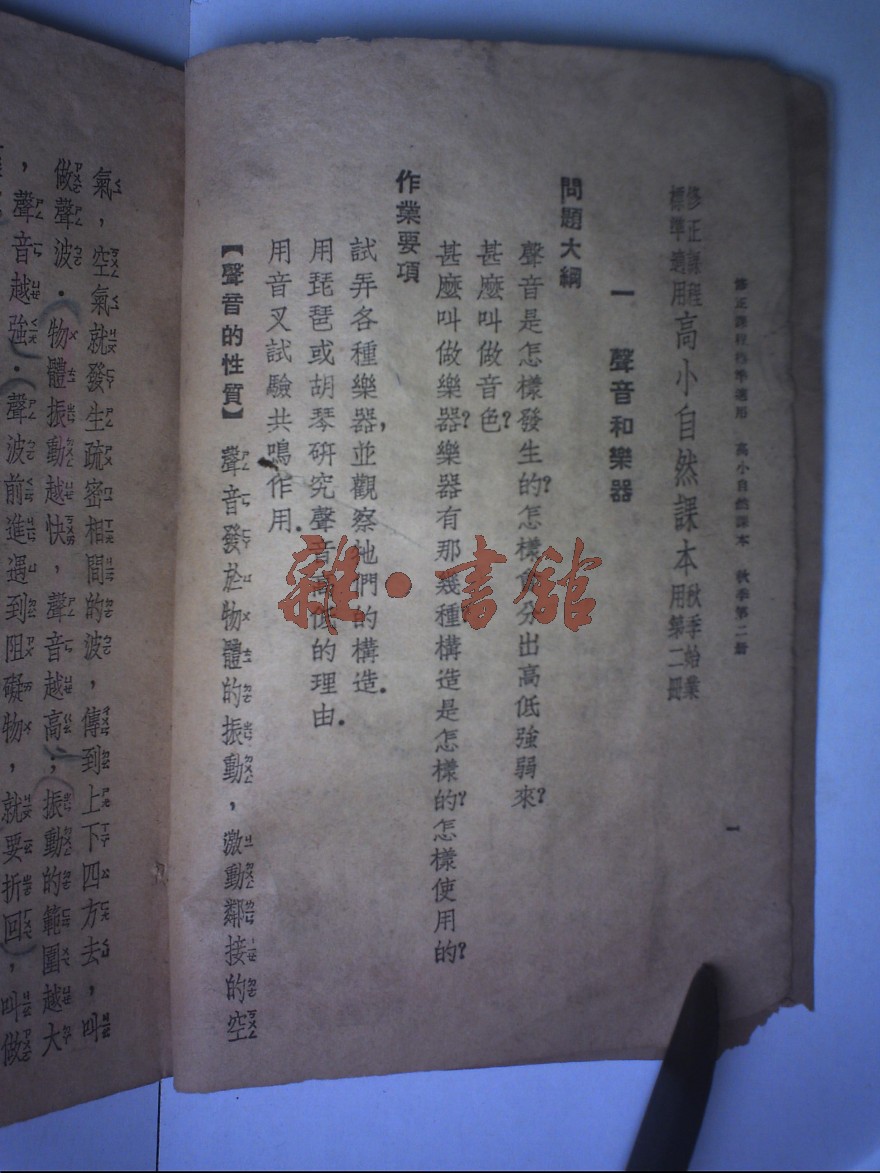 修正課程標準適用　高小自然課本　秋季第二册
一
修正課程
標準適用
高小自然課本
秋季始業
用第二冊
一　聲音和樂器
問題大綱
聲音是怎樣發生的?怎樣會分出高低強弱來?
甚麼叫做音色?
甚麼叫做樂器?樂器有那幾種?構造是怎樣的?怎樣使用的?
作業要項
試弄各種樂器,並觀察牠們的構造.
用琵琶或胡琴研究聲音高低的理由.
用音叉試驗共鳴作用.
【聲音的性質】　聲音發於物體的振動，激動鄰接的空
氣，空氣就發生疏密相間的波，傳到上下四方去，叫
做聲波．物體振動越快，聲音越高；振動的範圍越大
，聲音越強．聲波前進遇到阻礙物，就要折回，叫做
雜·書館